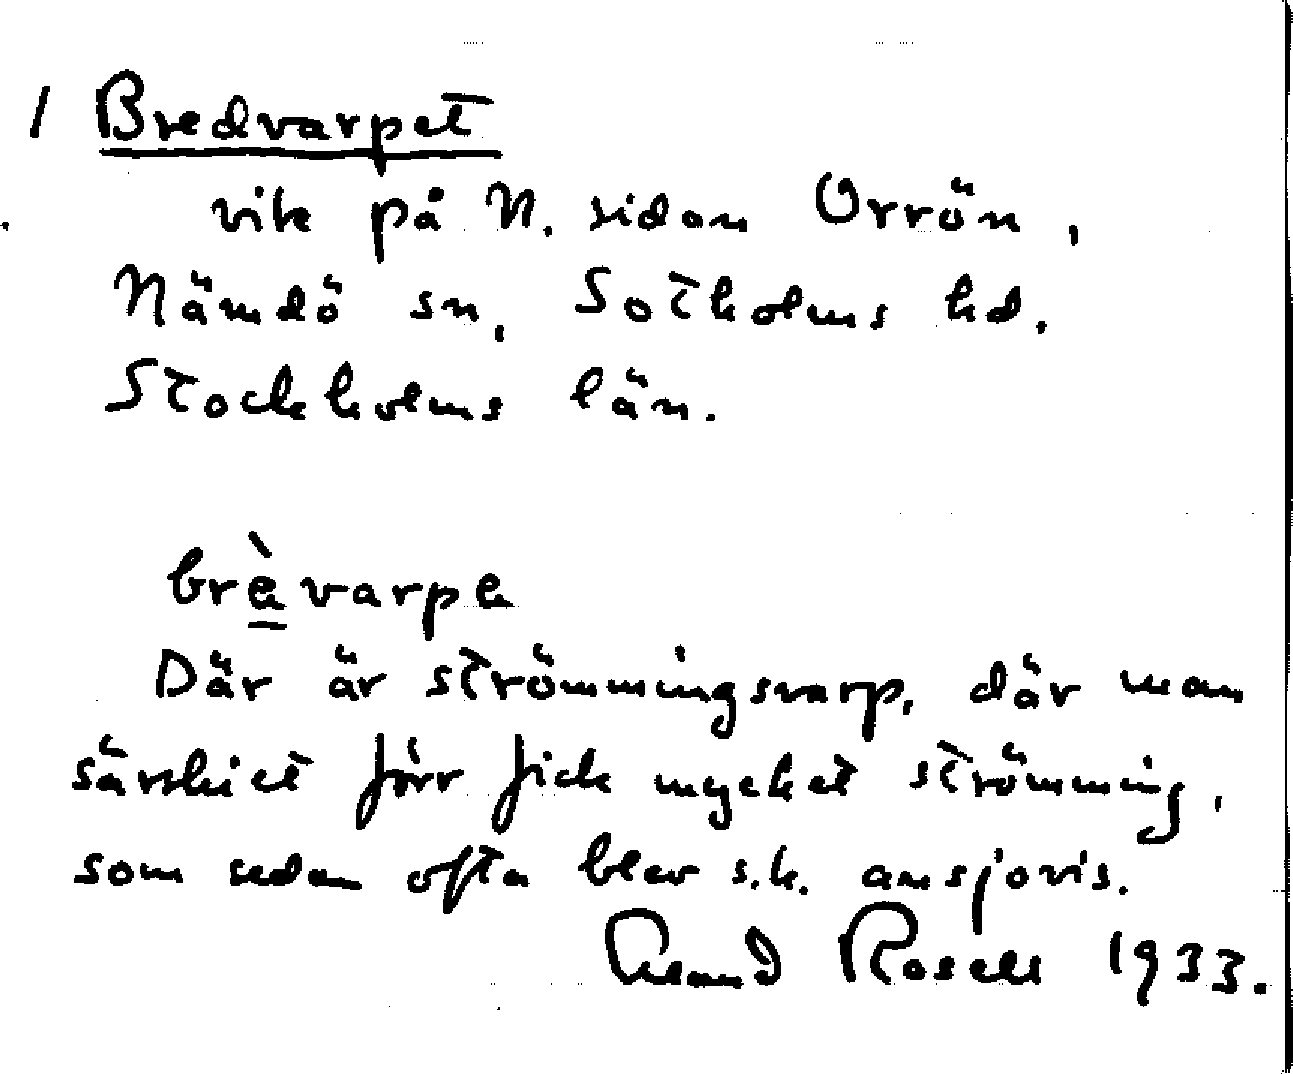 1 Bredvarpet
vik på N. sidan Orrön,
Nämdö sn, Sotholms hd.
Stockholms län.
brèvarpe
Där är strömmingsvarp, där man
särskilt förr fick mycket strömming,
som sedan ofta blev s.k. ansjovis.
Rosell 1933.